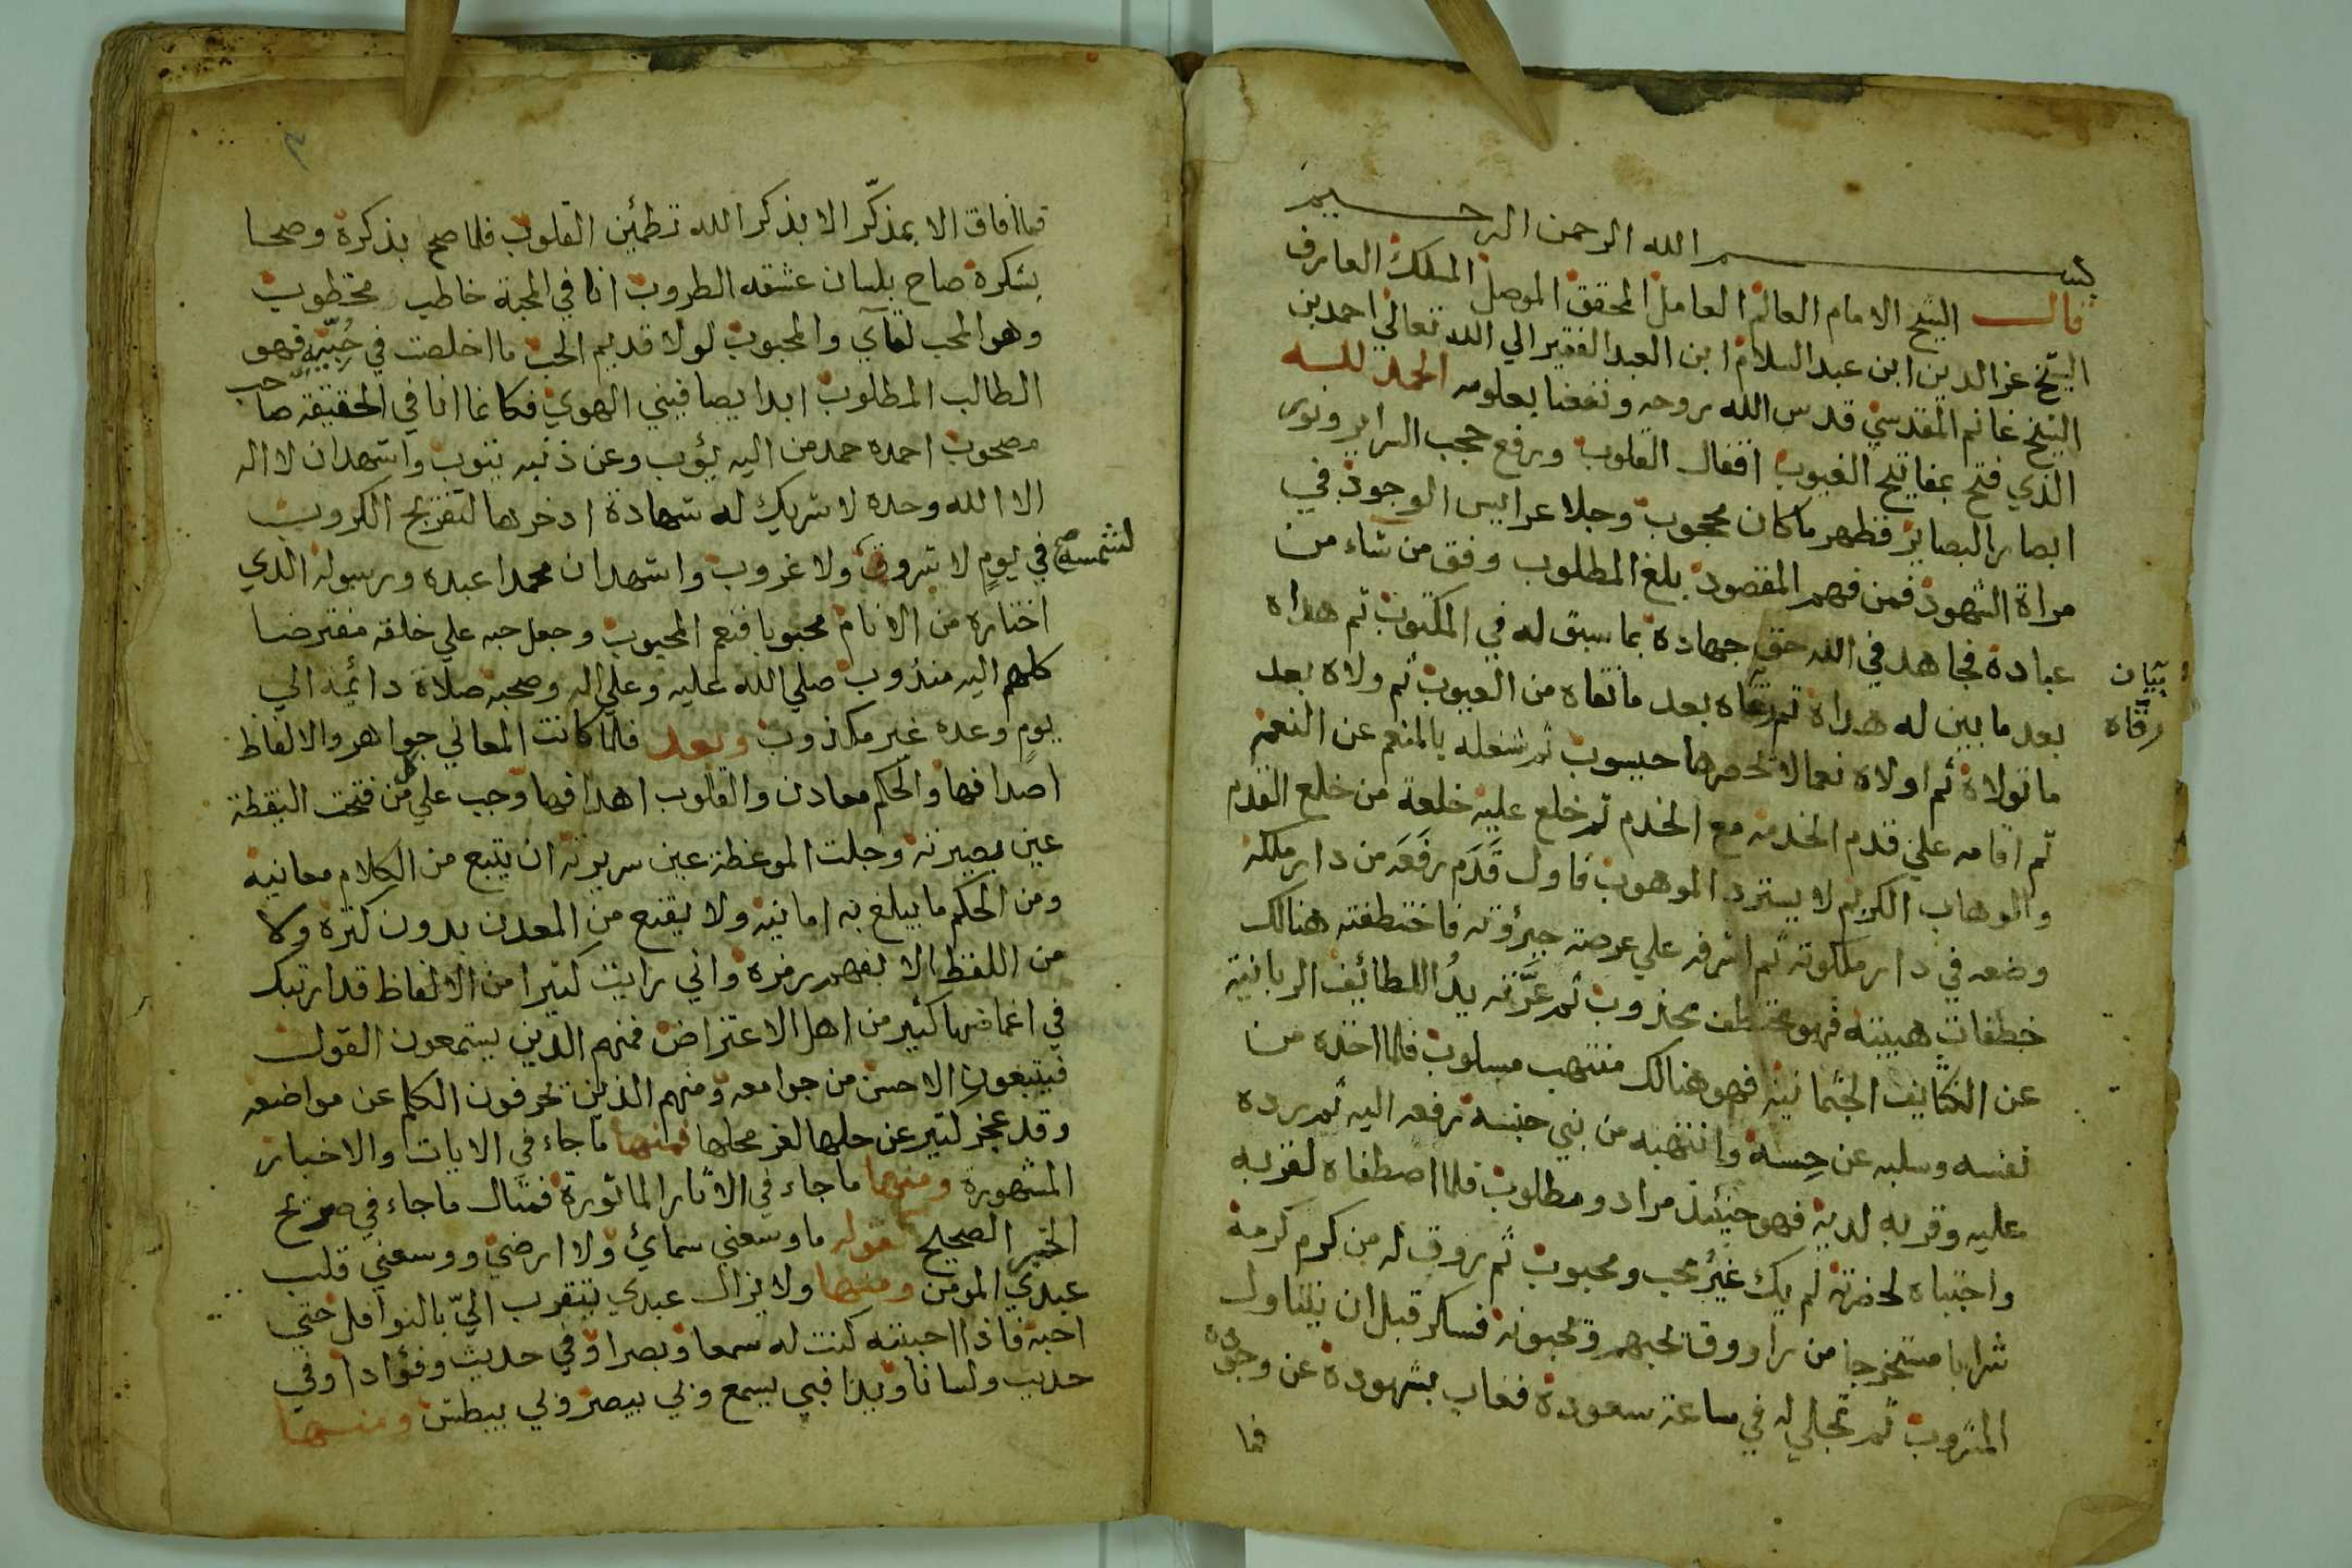 بسم الله الرحمن الرحيم
قال الشيخ الامام العالم العامل المحقق الموصل المسلك العارف
الشيخ عز الدين ابن عبد السلام ابن العبد الفقير الي الله تعالي احمد بن
الشيخ غانم المقدسي قدس الله روحه ونفعنا بعلومه الحمد لله
الذي فتح بمفاتيح الغيوب اقفال القلوب ورفع حجب السراير ونور
ابصار البصاير فظهر ما كان محجوب وجلا عرايس الوجود في
مراة الشهود فمن فهم المقصود بلغ المطلوب وفق من شاء من
عباده فجاهد في الله حق جهاده بما سبق له في المكتوب ثم هداه
بعد ما بين له هداه ثم رقاه بعد ما نقاه من العيوب ثم ولاه بعد
بيان
رقاه
ما تولاه ثم اولاه نعما لا تحصرها حيسوب ثم شغله بالمنعم عن النعم
ثم اقامه علي قدم الخدمه مع الخدم ثم خلع عليه خلعة من خلع القدم
والوهاب الكريم لا يسترد الموهوب فاول قدم رفعه من دار ملكه
وضعه في دار ملكوته ثم اشرفه علي عرصة جبروته فاختطفته هنالك
خطفات هيبته فهو مختطف مجذوب ثم عرّته يدُ اللطائف الربانية
عن الكثايف الجثمانية فهو هنالك منتهب مسلوب فلما اخذه من
نفسه وسلبه عن حِسه وانتهبه من بني جنسه رفعه اليه ثم رده
عليه وقربه لديه فهو حينئذ مراد ومطلوب فلما اصطفاه لقربه
واجتباه لحضرته لم يك غير محب ومحبوب ثم روق له من كرم كرمة
شرابا مستخرجا من راووق يحبهم ويحبونه فسكر قبل ان يتناول
المشروب ثم تجلي له في ساعة سعوده فغاب بشهوده عن وجوده
فما
فما افاق الا بمذكّر الا بذكر الله تطمئن القلوب فلما صح بذكره وصحا
بسكره صاح بلسان عشقه الطروب انا في المحبة خاطب مخطوب
وهو المحب لقاي والمحبوب لولا قديم الحب ما اخلصت في حُبّيه فهو
الطالب المطلوب ابدا يصافيني الهوي فكانما انا في الحقيقة صاحب
مصحوب احمده حمد من اليه يؤب وعن ذنبه يتوب واشهد ان لا اله
الا الله وحده لا شريك له شهادة ادخرها لتفريج الكروب
لشمسه صح
في يومٍ لا شروق ولا غروب واشهد ان محمدا عبده ورسوله الذي
اختاره من الانام محبوبا فنعم المحبوب وجعل حبه علي خلقه مفترضا
كلهم اليه مندوب صلي الله عليه وعلي اله وصحبه صلاة دائمة الي
يومٍ وعده غير مكذوب وبعد فلما كانت المعاني جواهر والالفاظ
اصدافها والحكم معادن والقلوب اهدافها وجب علي كل من فتحت اليقظة
عين بصيرته وجلت الموعظة عين سريرته ان يتبع من الكلام معانيه
ومن الحكم ما يبلغ به امانيه ولا يقنع من المعدن بدون كنزه ولا
من اللفظ الا بفهم رمزه واني رايت كثيرا من الالفاظ قد ارتبك
في اغماضها كثير من اهل الاعتراض فمنهم الذين يستمعون القول
فيتبعون الاحسن من جوامعه ومنهم الذين يحرفون الكلم عن مواضعه
وقد عجز كثير عن حلها لغز محلها فمنها ما جاء في الايات والاخبار
المشهورة ومنها ما جاء في الاثار الماثورة فمثال ما جاء في صريح
الخبر الصحيح قوله ما وسعني سمائ ولا ارضي ووسعني قلب
عبدي المومن ومنها ولا يزال عبدي يتقرب اليّ بالنوافل حتي
احبه فاذا احببته كنت له سمعا وبصرا وفي حديث وفؤادا وفي
حديث ولسانا ويدا فبي يسمع وبي يبصر وبي يبطش ومنها